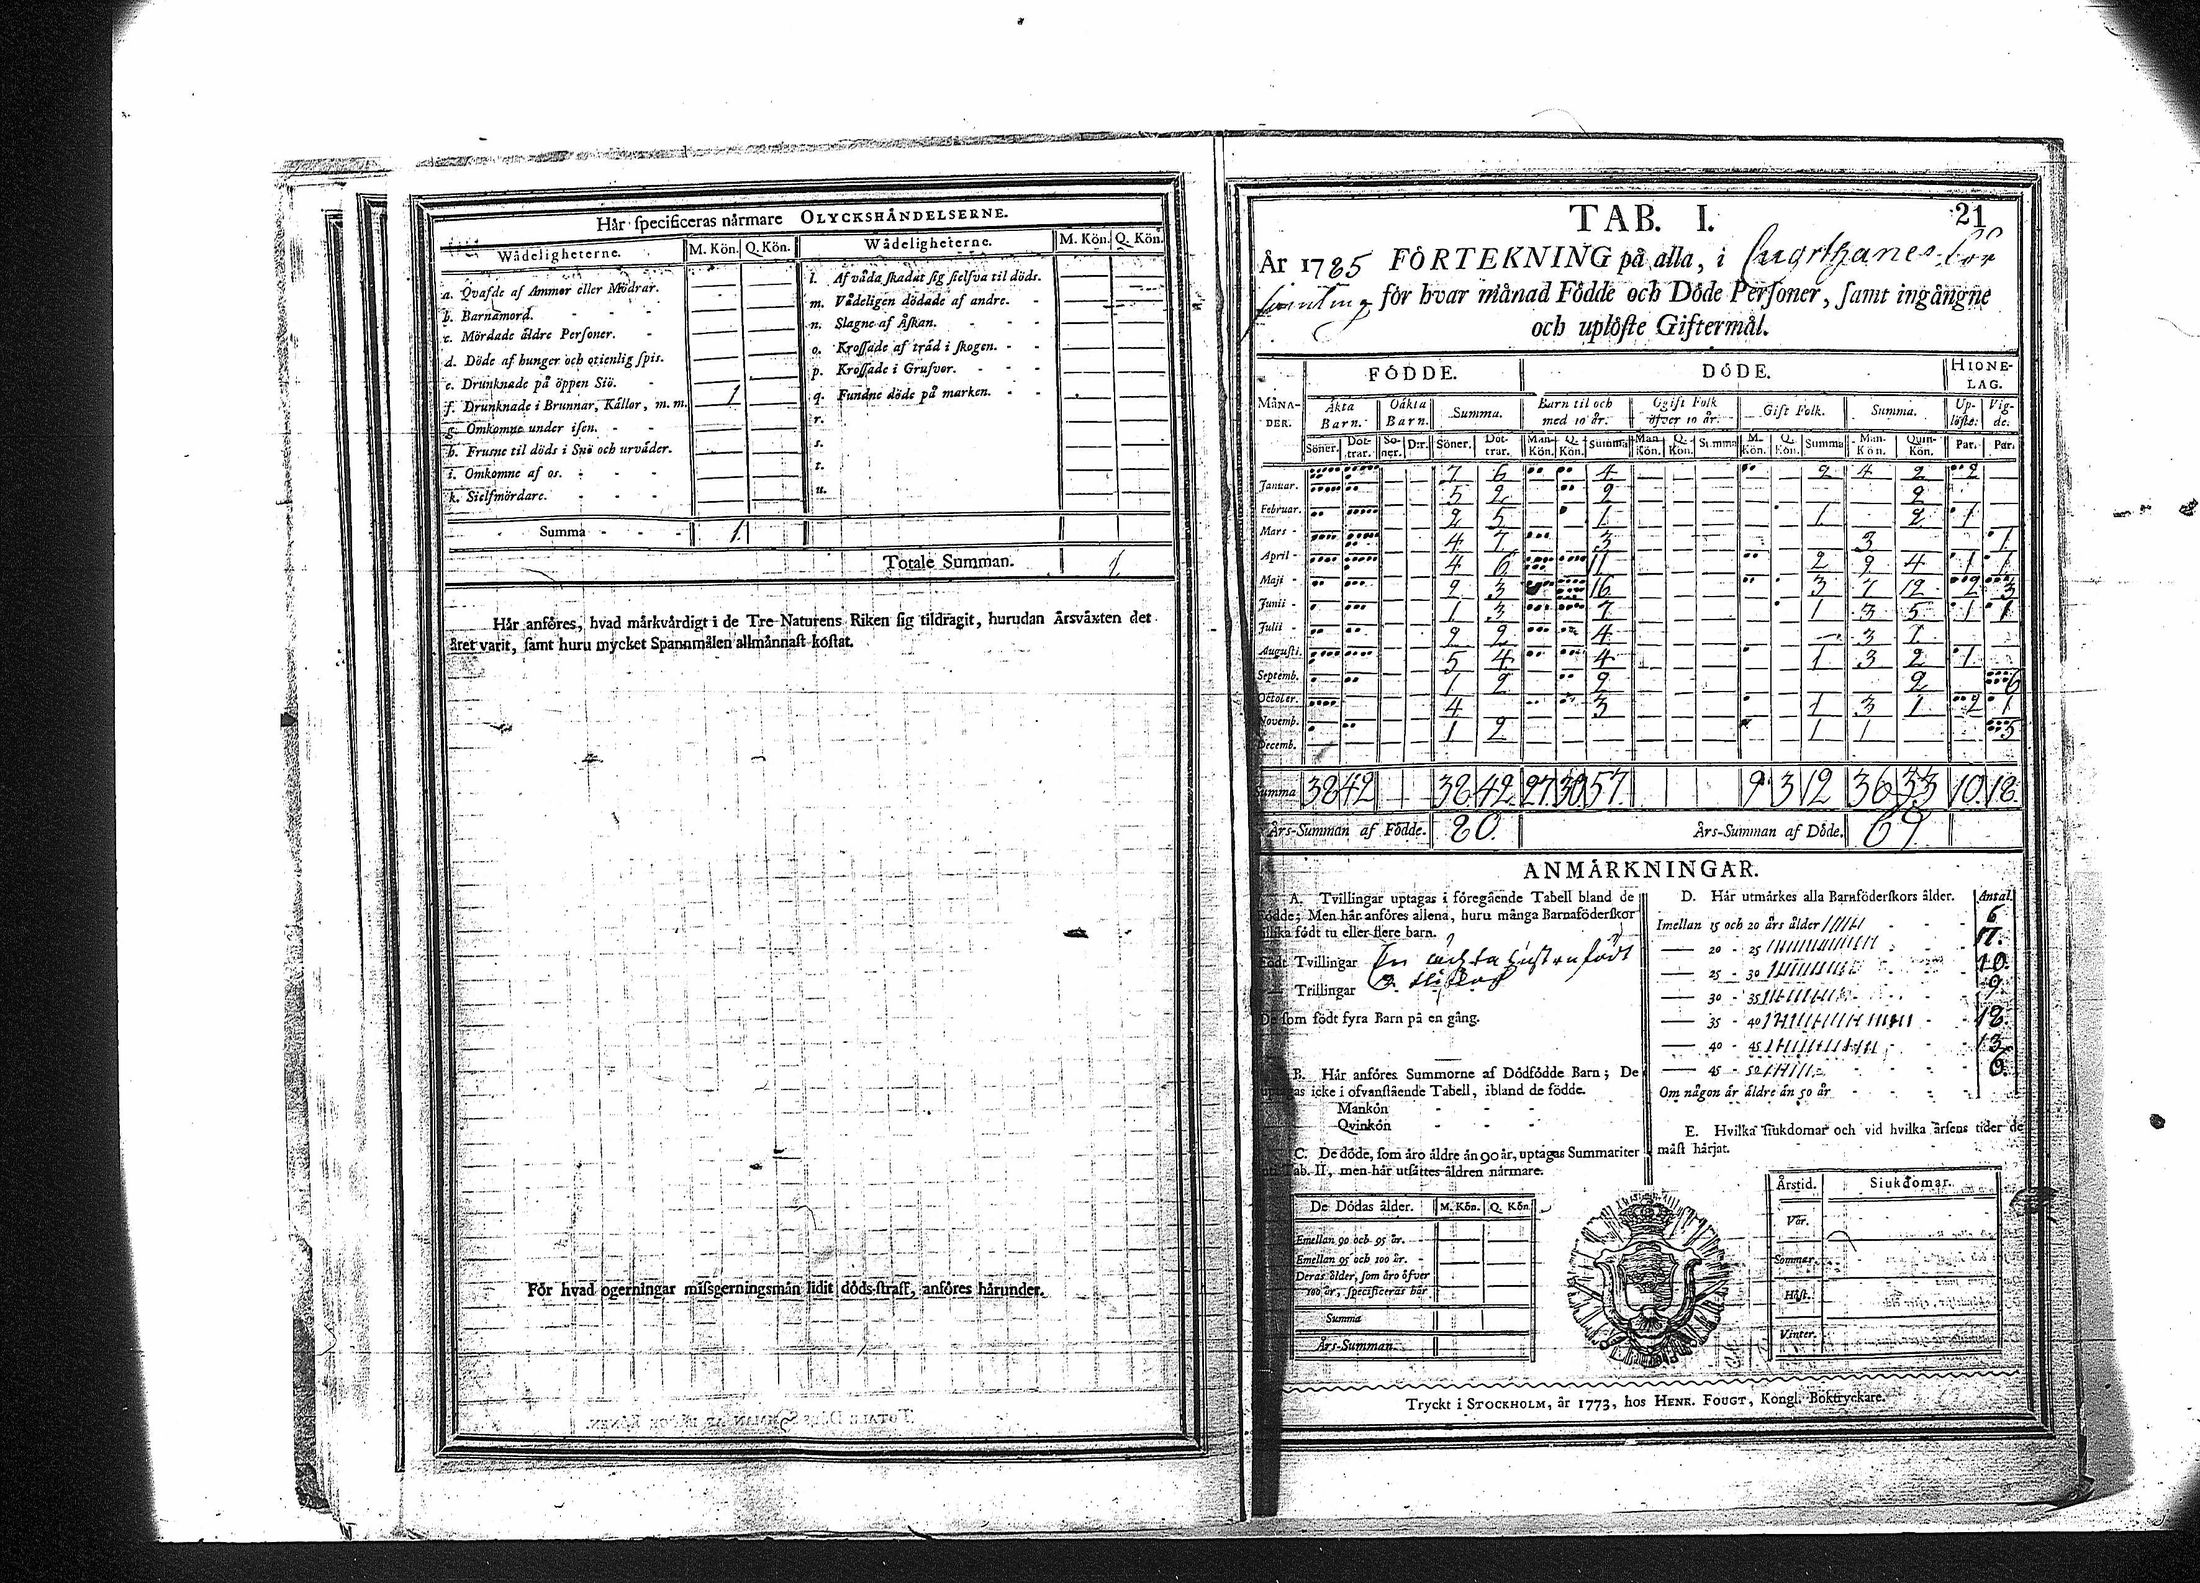 Hår specificeras nårmare OLYCKSHÅNDELSERNE.
Wådeligheterne. M. Kön. Q. Kön. Wådeligheterne. M. Kön. Q. Kön.
a. Qvafde af Ammor eller Mödrar.
b. Barnamord. - - -
c. Mördade åldre Personer. -
d. Döde af hunger och otienlig spis.
e. Drunknade på öppen Siö. -
f. Drunknade i Brunnar, Kållor, m. m. 1
g. Omkomne under isen. - -
h. Frusne til döds i Snö och urvåder.
i. Omkomne af os. - - -
k. Sielfmördare. - - -
l. Af våda skadat sig sielfva til döds.
m. Vådeligen dödade af andre. -
n. Slagne af Åskan. - - -
o. Krossade af tråd i skogen. - -
p. Krossade i Grufvor. - - -
q. Fundne döde på marken. - -
r.
s.
t.
u.
Summa - - - 1.
Totale Summan. 1
Hår anföres, hvad mårkvårdigt i de Tre Naturens Riken sig tildragit, hurudan Årsvåxten det
året varit, samt huru mycket Spannmålen allmånnast kostat.
För hvad ogerningar missgerningsmån lidit döds-straff, anföres hårunder.
TAB. I. 21
År 1785 FÖRTEKNING på alla, i
för hvar månad Födde och Döde Personer, samt ingångne
och uplöste Giftermål.
FÖDDE. DÖDE. HIONE-
LAG.
MÅNA-
DER. Åkta
Barn. Oåkta
Barn. Summa. Barn til och
med 10 år. Ogift Folk
öfver 10 år. Gift Folk. Summa. Up-
löste. Vig-
de.
Söner. Döt-
trar. Sö-
ner. D:r. Söner. Döt-
trar. Man-
Kön. Q.
Kön. Summa Man
Kön. Q.
Kön. Summa M.
Kön. Q.
Kön. Summa Man-
Kön. Quin-
Kön. Par. Par.
Januar. 7 6 4 2 4 2 2
Februar. 5 2 2 2
Mars - 2 5 1 1 2 1
April - 4 7 3 3 1
Maji - 4 6 11 2 9 4 1 1
Junii - 2 3 16 3 7 12 2 3
Julii - 1 3 7 1 3 5 1 1
Augusti. 2 2 4 3 1
Septemb. 5 4 4 1 3 2 1
October. 1 2 2 2 6
Novemb. 4 3 1 3 1 2 1
Decemb. 1 2 1 1 5
Summa 38 42 38 42 27 30 57 9 3 12 36 33 10 18
Års-Summan af Födde. 80. Års-Summan af Döde. 69
ANMÅRKNINGAR.
A. Tvillingar uptagas i föregående Tabell bland de
födde; Men hår anföres allena, huru många Barnaföderskor
tillika födt tu eller flere barn.
Födt Tvillingar
— Trillingar
De som födt fyra Barn på en gång.
B. Hår anföres Summorne af Dödfödde Barn; De
uptagas icke i ofvanstående Tabell, ibland de födde.
Mankön - - -
Qvinkön - - -
C. De döde, som åro åldre ån 90 år, uptagas Summariter
uti Tab. II, men hår utsåttes åldren nårmare.
De Dödas ålder. M. Kön. Q. Kön.
Emellan 90 och 95 år. -
Emellan 95 och 100 år. -
Deras ålder, som åro öfver
100 år, specificeras hår
Summa
Års-Summan.
D. Hår utmårkes alla Barnföderskors ålder. Antal.
Imellan 15 och 20 års ålder 6
— 20 - 25 17.
— 25 - 30 10.
— 30 - 35 9.
— 35 - 40 18.
— 40 - 45 13.
— 45 - 50 6.
Om någon år åldre ån 50 år - - -
E. Hvilka siukdomar och vid hvilka årsens tider de
måst hårjat.
Årstid. Siukdomar.
Vår.
Sommar.
Höst.
Vinter.
Tryckt i STOCKHOLM, år 1773, hos HENR. FOUGT, Kongl. Boktryckare.